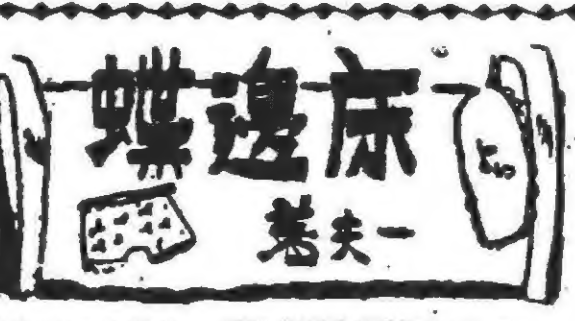 床邊蝶
一夫著